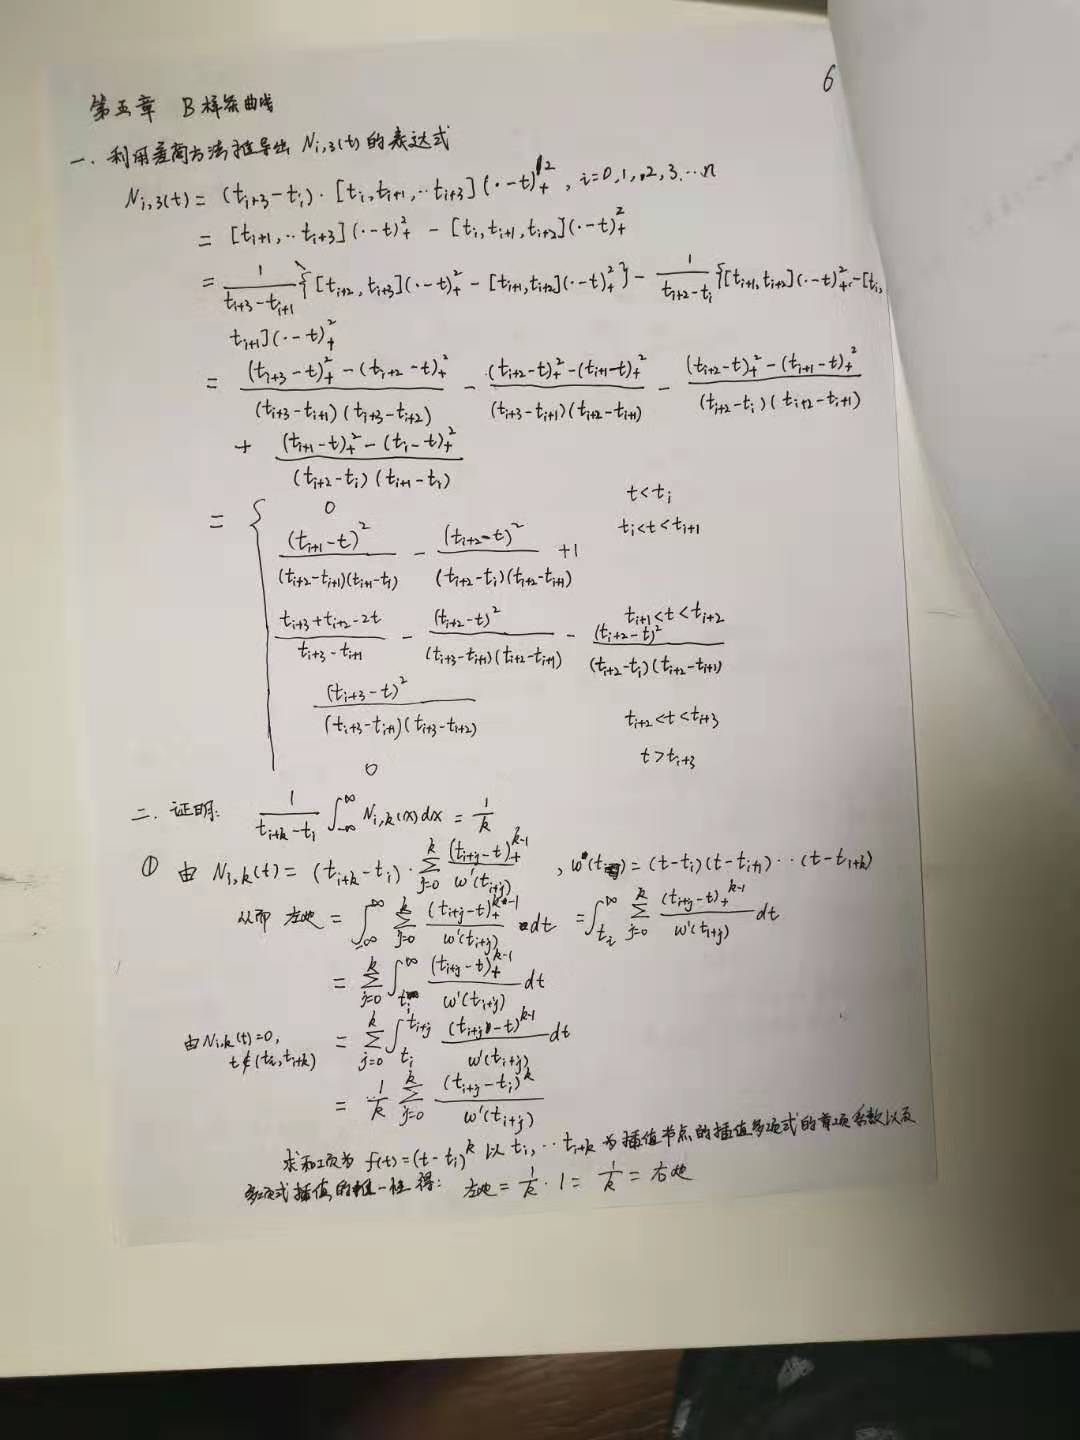 6
第五章 B样条曲线
一. 利用差商方法推导出 N_{i,3}(t) 的表达式
N_{i,3}(t) = (t_{i+3}-t_i)·[t_i,t_{i+1},··t_{i+3}](·-t)_+^2, i=0,1,2,3···n
= [t_{i+1},··t_{i+3}](·-t)_+^2 - [t_i,t_{i+1},t_{i+2}](·-t)_+^2
= \frac{1}{t_{i+3}-t_{i+1}}{[t_{i+2},t_{i+3}](·-t)_+^2 - [t_{i+1},t_{i+2}](·-t)_+^2} - \frac{1}{t_{i+2}-t_i}{[t_{i+1},t_{i+2}](·-t)_+^2 - [t_i,
t_{i+1}](·-t)_+^2
= \frac{(t_{i+3}-t)_+^2-(t_{i+2}-t)_+^2}{(t_{i+3}-t_{i+1})(t_{i+3}-t_{i+2})} - \frac{(t_{i+2}-t)_+^2-(t_{i+1}-t)_+^2}{(t_{i+3}-t_{i+1})(t_{i+2}-t_{i+1})} - \frac{(t_{i+2}-t)_+^2-(t_{i+1}-t)_+^2}{(t_{i+2}-t_i)(t_{i+2}-t_{i+1})}
+ \frac{(t_{i+1}-t)_+^2-(t_i-t)_+^2}{(t_{i+2}-t_i)(t_{i+1}-t_i)}
= { 0 t<t_i
\frac{(t_{i+1}-t)^2}{(t_{i+2}-t_{i+1})(t_{i+1}-t_i)} - \frac{(t_{i+2}-t)^2}{(t_{i+2}-t_i)(t_{i+2}-t_{i+1})} +1 t_i<t<t_{i+1}
\frac{t_{i+3}+t_{i+2}-2t}{t_{i+3}-t_{i+1}} - \frac{(t_{i+2}-t)^2}{(t_{i+3}-t_{i+1})(t_{i+2}-t_{i+1})} - \frac{(t_{i+2}-t)^2}{(t_{i+2}-t_i)(t_{i+2}-t_{i+1})} t_{i+1}<t<t_{i+2}
\frac{(t_{i+3}-t)^2}{(t_{i+3}-t_{i+1})(t_{i+3}-t_{i+2})} t_{i+2}<t<t_{i+3}
0 t>t_{i+3}
二. 证明: \frac{1}{t_{i+k}-t_i}∫_{-∞}^{∞} N_{i,k}(x)dx = \frac{1}{k}
① 由 N_{i,k}(t) = (t_{i+k}-t_i)·∑_{j=0}^{k}\frac{(t_{i+j}-t)_+^{k-1}}{w'(t_{i+j})}, w(t) = (t-t_i)(t-t_{i+1})··(t-t_{i+k})
从而 左边 = ∫_{-∞}^{∞}∑_{j=0}^{k}\frac{(t_{i+j}-t)_+^{k-1}}{w'(t_{i+j})}dt = ∫_{t_i}^{∞}∑_{j=0}^{k}\frac{(t_{i+j}-t)_+^{k-1}}{w'(t_{i+j})}dt
= ∑_{j=0}^{k}∫_{t_i}^{∞}\frac{(t_{i+j}-t)_+^{k-1}}{w'(t_{i+j})}dt
由N_{i,k}(t)=0, t∉(t_i,t_{i+k}) = ∑_{j=0}^{k}∫_{t_i}^{t_{i+j}}\frac{(t_{i+j}-t)^{k-1}}{w'(t_{i+j})}dt
= \frac{1}{k}∑_{j=0}^{k}\frac{(t_{i+j}-t_i)^k}{w'(t_{i+j})}
求和项为 f(t)=(t-t_i)^k 以 t_i,··t_{i+k} 为插值节点的插值多项式的首项系数以及
多项式插值的唯一性得: 左边 = \frac{1}{k}·1 = \frac{1}{k} = 右边